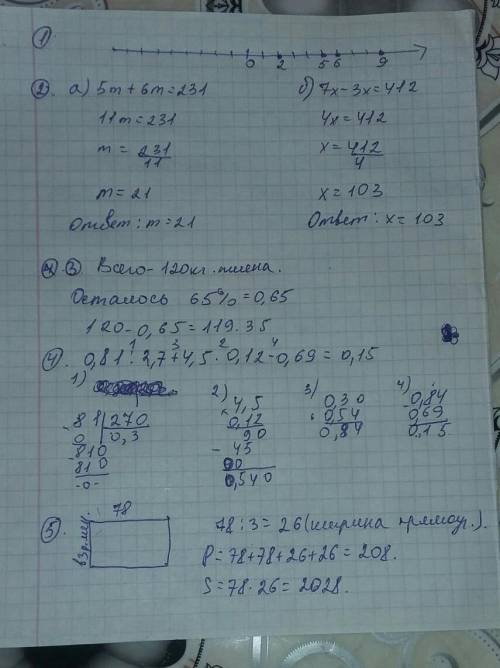 1
0 2 5 6 9
2. а) 5m + 6m = 231 б) 7x - 3x = 412
11m = 231 4x = 412
m = 231/11 x = 412/4
m = 21 x = 103
Ответ: m = 21 Ответ: x = 103
3 Всего - 120 кг. пшена.
Осталось 65% = 0,65
120 - 0,65 = 119.35
4. 0,81 : 2,7 + 4,5 · 0,12 - 0,69 = 0,15
1 3 2 4
1) 2) 3) 4)
81 270 4,5 0,30 0,84
0 0,3 0,12 0,54 0,69
810 90 0,84 0,15
810 45
-0- 00
0,540
5. 78
в 3 р. мен.
78 : 3 = 26 (ширина прямоуг.).
P = 78 + 78 + 26 + 26 = 208.
S = 78 · 26 = 2028.